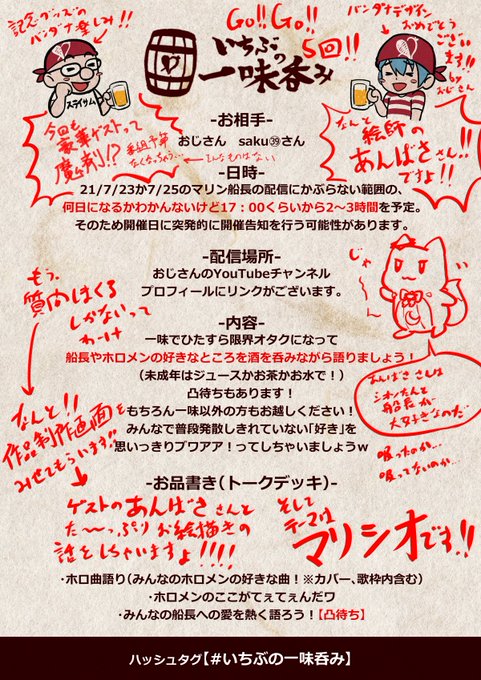 記念グッズの
バンダナ楽しみ!!
GO!!GO!!
5回!!
バンダナデザイン
おめでとう
ござい
ます!!
by おじさん
スライサム
いちぶの
一味呑み
-お相手-
おじさん saku㊴さん
今回も
豪華ゲストって
魔剤!?
そんなものはない
なんと
絵師の
あんばささん!!
ですよ!!
-日時-
21/7/23か7/25のマリン船長の配信にかぶらない範囲の、
何日になるかわかんないけど17:00くらいから2~3時間を予定。
そのため開催日に突発的に開催告知を行う可能性があります。
-配信場所-
おじさんのYouTubeチャンネル
プロフィールにリンクがございます。
じゃ〜ん
もう、
質問はくる
しかないって
わーけ
-内容-
一味でひたすら限界オタクになって
船長やホロメンの好きなところを酒を呑みながら語りましょう!
(未成年はジュースかお茶かお水で!)
凸待ちもあります!
もちろん一味以外の方もお越しください!
みんなで普段発散しきれていない「好き」を
思いっきりブワアア!ってしちゃいましょうw
あんばささんは
シオンたんと
船長が
大好きなのだ
吸ったのか…
吸ってないのか…
なんと!!
作品制作画面を
みせてもらいます!!
-お品書き(トークデッキ)-
ゲストのあんばささんと
た〜〜っぷりお絵描きの
話をしちゃいますよ!!!!
そして
テーマは
マリシオです!!
・ホロ曲語り(みんなのホロメンの好きな曲!※カバー、歌枠内含む)
・ホロメンのここがてぇてぇんだワ
・みんなの船長への愛を熱く語ろう!【凸待ち】
ハッシュタグ【#いちぶの一味呑み】